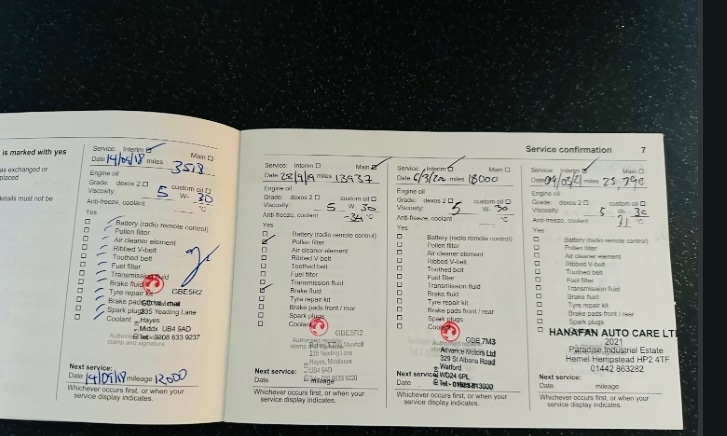 is marked with yes
as exchanged or
placed
details must not be
Service: Interim Main
Date 14/05/18 miles 3518
Engine oil
Grade: dexos 2 custom oil
Viscosity: 5 W- 30
Anti-freeze, coolant °C
Yes
Battery (radio remote control)
Pollen filter
Air cleaner element
Ribbed V-belt
Toothed belt
Fuel filter
Transmission fluid
Brake fluid
Tyre repair kit
Brake pads
Spark plugs
Coolant
GBE5R2
235 Yeading Lane
Hayes
Middx UB4 9AD
Tel: 0208 633 9237
stamp and signature
Next service:
Date mileage 12000
Whichever occurs first, or when your
service display indicates.
Service: Interim Main
Date 28/9/19 miles 13937
Engine oil
Grade: dexos 2 custom oil
Viscosity: 5 W- 30
Anti-freeze, coolant -34 °C
Yes
Battery (radio remote control)
Pollen filter
Air cleaner element
Ribbed V belt
Toothed belt
Fuel filter
Transmission fluid
Brake fluid
Tyre repair kit
Brake pads front / rear
Spark plugs
Coolant
GBE5R2
235 Yeading Lane
Hayes, Middlesex
UB4 9AD
Next service:
Date mileage
Whichever occurs first, or when your
service display indicates.
Service confirmation 7
Service: Interim Main
Date 6/3/20 miles 18000
Engine oil
Grade: dexos 2 custom oil
Viscosity: 5 W- 30
Anti-freeze, coolant °C
Yes
Battery (radio remote control)
Pollen filter
Air cleaner element
Ribbed V-belt
Toothed belt
Fuel filter
Transmission fluid
Brake fluid
Tyre repair kit
Brake pads front / rear
Spark plugs
Coolant
GBE7M3
Advance Motors Ltd
329 St Albans Road
Watford
WD24 6PL
Next service:
Date mileage
Whichever occurs first, or when your
service display indicates.
Service: Interim Main
Date 09/03/21 miles 25,790
Engine oil
Grade: dexos 2 custom oil
Viscosity: 5 W- 30
Anti-freeze, coolant 31 °C
Yes
Battery (radio remote control)
Pollen filter
Air cleaner element
Ribbed V-belt
Toothed belt
Fuel filter
Transmission fluid
Brake fluid
Tyre repair kit
Brake pads front / rear
Spark plugs
HANAFAN AUTO CARE LT
2021
Paradise Industrial Estate
Hemel Hempstead HP2 4TF
01442 863282
Next service:
Date mileage
Whichever occurs first, or when your
service display indicates.